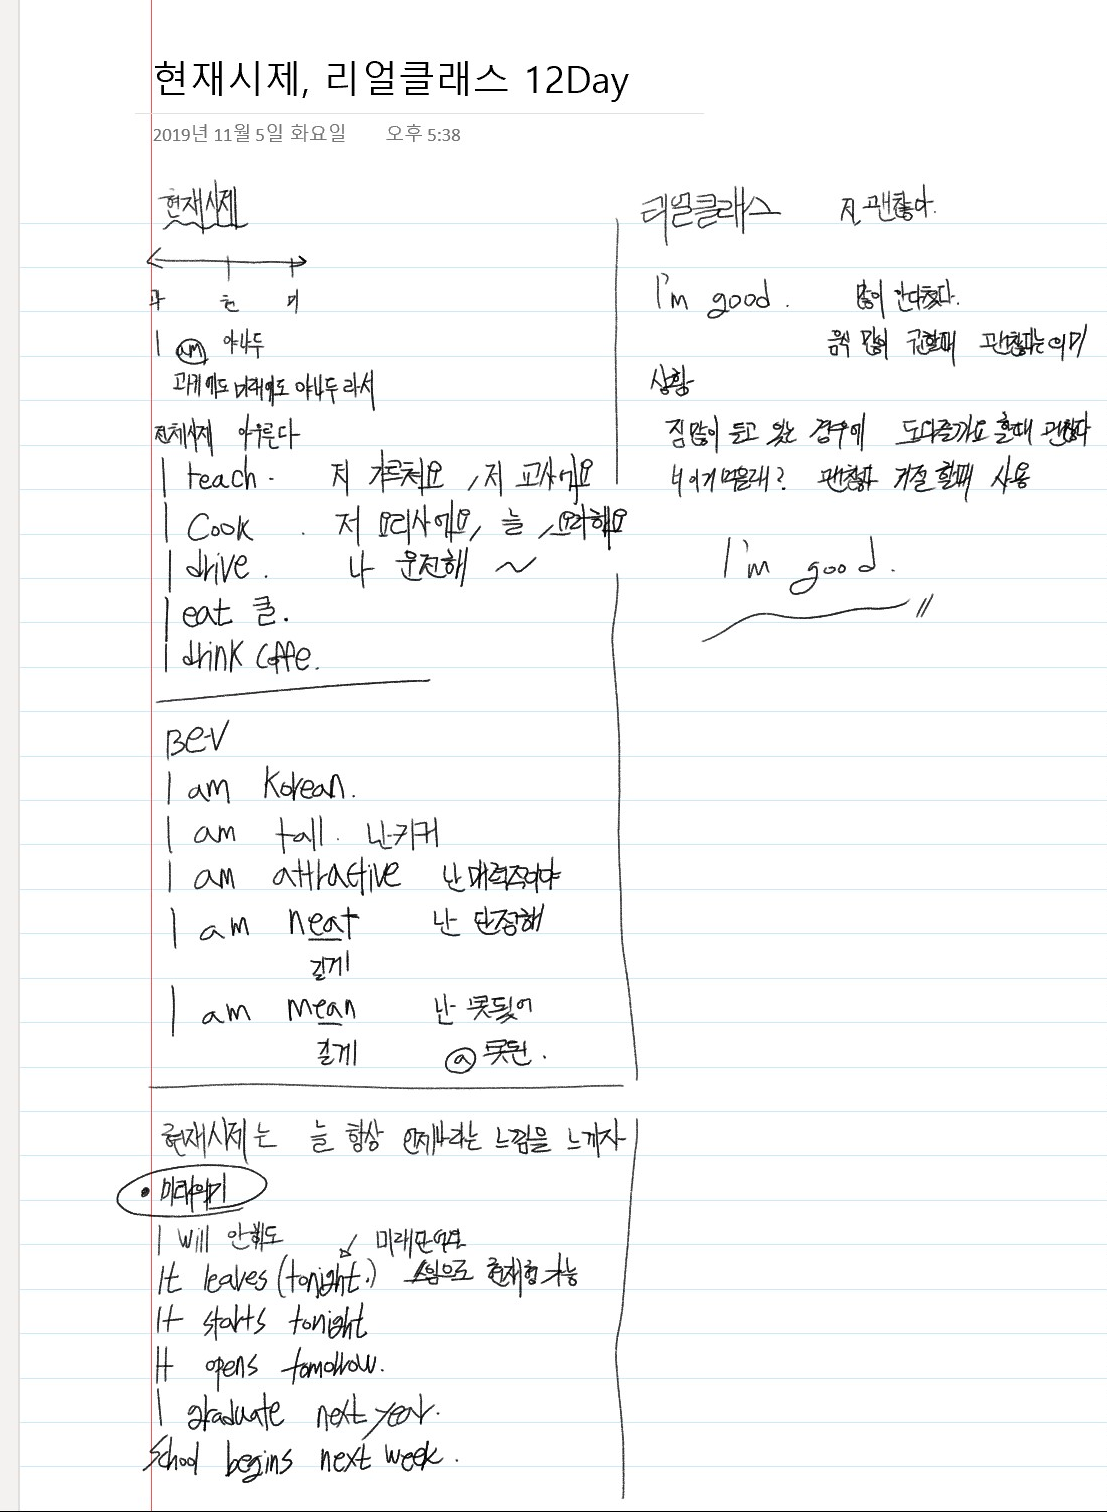 현재시제, 리얼클래스 12Day
2019년 11월 5일 화요일 오후 5:38
현재시제
과 현 미
I am 야나두
과거에도 미래에도 야나두 라서
전체시제 아우른다
I teach. 저 가르쳐요, 저 교사에요
I cook. 저 요리사에요, 늘 요리해요
I drive. 나 운전해 ~
I eat 귤.
I drink coffe.
Be-V
I am Korean.
I am tall. 난 키커
I am attractive 난 매력적이야
I am neat 난 단정해
길게
I am mean 난 못됬어
길게 ⓐ 못된.
현재시제는 늘 항상 언제나라는 느낌을 느끼자
• 미래얘기
I will 안해도 미래단어
It leaves (tonight.) 씀으로 현재형 가능
It starts tonight
It opens tomorrow.
I graduate next year.
School begins next week.
리얼클래스 전 괜찮다.
I'm good. 많이 안다쳤다.
음식 많이 권할때 괜찮다는 의미
상황
짐많이 들고 있는 경우에 도와줄까요 할때 괜찮다
너 이거 먹을래? 괜찮다 거절 할때 사용
I'm good.